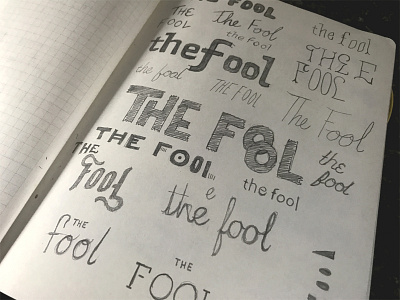 THE FOOL
THE
FOOL
The Fool
the fool
the fool
the fool
THE
FOOL
the fool
THE FOOL
The Fool
THE FOOL
THE FOOL
the
fool
THE
Fool
the fool
the fool
THE
fool
THE
FOOL